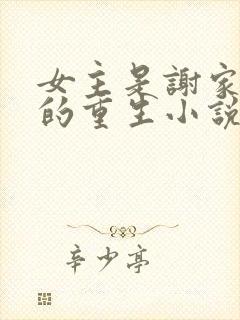 女主是謝家
的重生小說
辛少亭